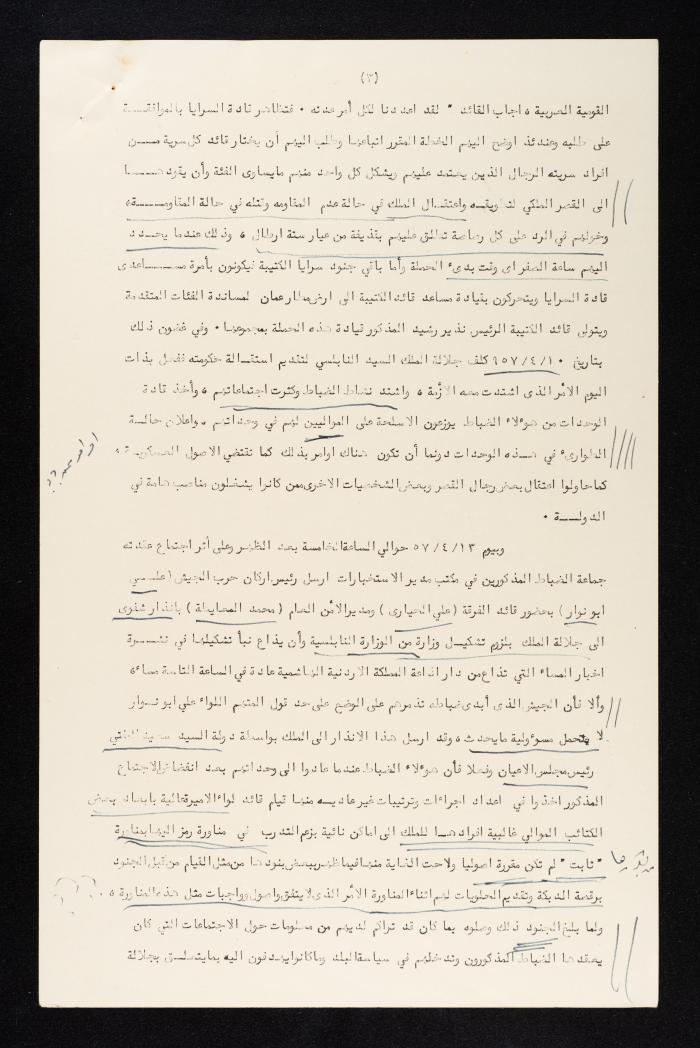 (٣)
القومية العربية ، اجاب القائد " لقد اعددنا لكل أمر عدته ٠ فتظاهر قادة السرايا بالموافقـــة
على طلبه وعندئذ اوضح اليهم الخطة المقرر اتباعها وطلب اليهم أن يختار قائد كل سرية مــــن
افراد سريته الرجال الذين يعتمد عليهم ويشكل كل واحد منهم مايساوى الفئة وأن يقودهــــا
الى القصر الملكي لتطويقـــه واعتقــال الملك في حالة عدم المقاومه وقتله في حالة المقاومــــة ،
وخولهم في الرد على كل رصاصة تطلق عليهم بقذيفة من عيار ستة ارطال ، وذلك عندما يحـــدد
اليهم ساعة الصفر اى وقت بدىء الحملة وأما باقي جنود سرايا الكتيبة فيكونون بأمرة مســـاعدى
قادة السرايا ويتحركون بقيادة مساعد قائد الكتيبة الى ارض مطار عمان لمساندة الفئات المتقدمة
ويتولى قائد الكتيبة الرئيس نذير رشيد المذكور قيادة هذه الحملة بمجموعها ٠ وفي غضون ذلك
بتاريخ ١٠/٤/٩٥٧ كلف جلالة الملك السيد النابلسي لتقديم استقـالة حكومته ففعل بذات
اليوم الأمر الذى اشتدت معه الأزمة ، واشتد نشاط الضباط وكثرت اجتماعاتهم ، وأخذ قادة
الوحدات من هوءلاء الضباط يوزعون الاسلحة على المواليين لهم في وحداتهم ، واعلان حالـــة
الطوارىء في هـــذه الوحدات دونما أن تكون هناك اوامر بذلك كما تقتضي الاصول العسكريـــة ،
كما حاولوا اعتقال بعض رجال القصر وبعض الشخصيات الاخرى ممن كانوا يشغلون مناصب هامة في
الدولـــة ٠
وبيوم ١٣/٤/٥٧ حوالي الساعة الخامسة بعد الظهر وعلى أثر اجتماع عقدته
جماعة الضباط المذكورين في مكتب مدير الاستخبارات ارسل رئيس اركان حرب الجيش (علـــي
ابو نوار) بحضور قائد الفرقة (علي الحيارى) ومدير الأمن العام (محمد المعايطة) بانذار شفوى
الى جلالة الملك بلزوم تشكيـــل وزارة من الوزارة النابلسية وأن يذاع نبأ تشكيلها في نشـــرة
اخبار المساء التي تذاع من دار اذاعة المملكة الاردنية الهاشمية عادة في الساعة التاسعة مساء ،
وألا فأن الجيش الذى أبدى ضباطه تذمرهم على الوضع على حد قول المتهم اللواء علي ابو نـــوار
لا يتحمل مسوءولية مايحدث ، وقد ارسل هذا الانذار الى الملك بواسطة دولة السيد سعيد المفتي
رئيس مجلس الاعيان وفعلا فأن هوءلاء الضباط عندما عادوا الى وحداتهم بعد انفضاض الاجتماع
المذكور اخذوا في اعداد اجراءات وترتيبات غير عاديـــه منها قيام قائد لواء الاميرة عالية بابعاد بعض
الكتائب الموالي غالبية افرادهـــا للملك الى اماكن نائية بزعم التدرب في مناورة رمز اليها بمناورة
" ثابت " لم تكن مقررة اصوليا ولاحت الغاية منها فيما ظهر ببعض بنودها من مثل القيام من قبل الجنود
برقصة الدبكة وتقديم الحلويات لهم اثناء المناورة الأمر الذى لا يتفق واصول وواجبات مثل هذه المناورة ٠
ولما بلغ الجنود ذلك وصلوه بما كان قد تراكم لديهم من معلومات حول الاجتماعات التي كان
يعقدها الضباط المذكورون وتدخلهم في سياسة البلد وما كانوا يهدفون اليه بما يتعلـــق بجلالة